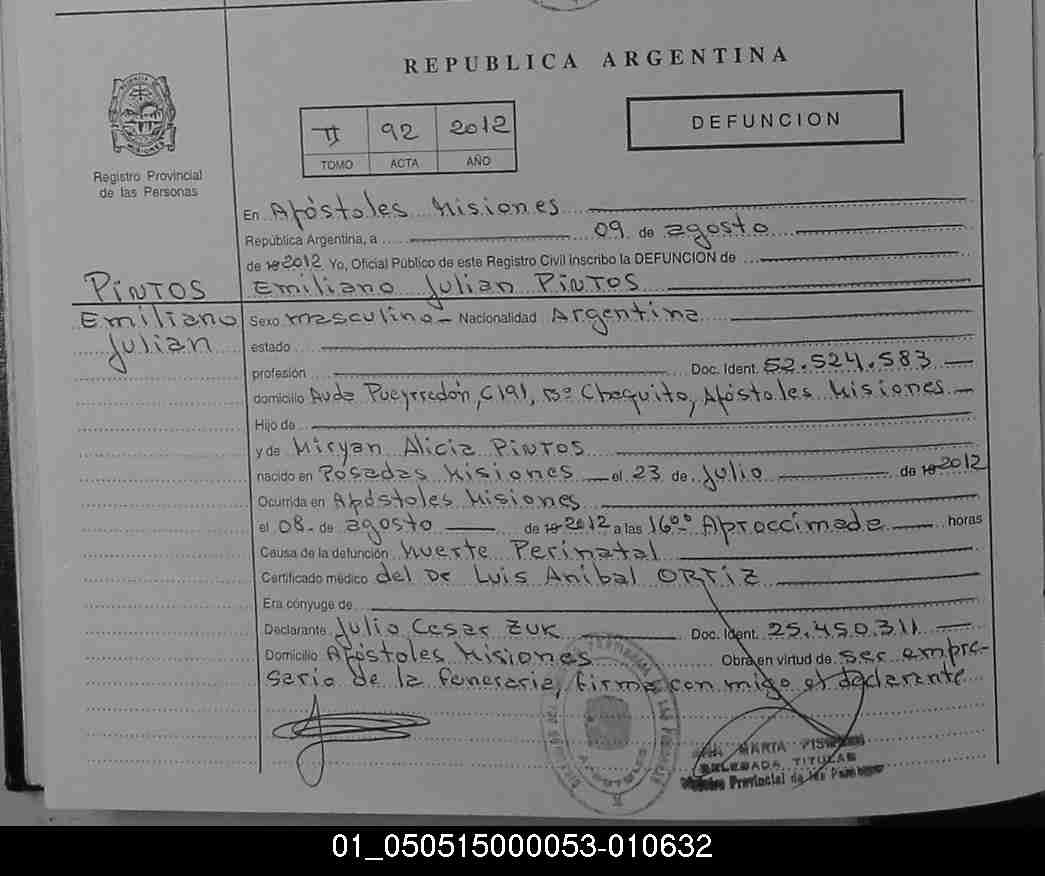 REPUBLICA ARGENTINA
Registro Provincial
de las Personas
II 92 2012
TOMO ACTA AÑO
DEFUNCION
PINTOS
Emiliano
Julian
En Apóstoles Misiones
República Argentina, a 09 de agosto
de 19 2012 Yo, Oficial Público de este Registro Civil inscribo la DEFUNCION de
Emiliano Julian PINTOS
Sexo masculino Nacionalidad Argentina
estado
profesión Doc. Ident. 52.524.583
domicilio Avda Pueyrredón, C191, Bº Chaquito, Apóstoles Misiones
Hijo de
y de Miryan Alicia PINTOS
nacido en Posadas Misiones el 23 de Julio de 19 2012
Ocurrida en Apóstoles Misiones
el 08 de agosto de 19 2012 a las 16ºº Aproccimada horas
Causa de la defunción Muerte Perinatal
Certificado médico del Dr Luis Anibal ORTIZ
Era cónyuge de
Declarante Julio Cesar ZUK Doc. Ident. 25.450.311
Domicilio Apóstoles Misiones Obra en virtud de ser empre-
sario de la funeraria, firma con migo el declarante
MARIA
DELEGADA TITULAR
Registro Provincial de las Personas
01_050515000053-010632